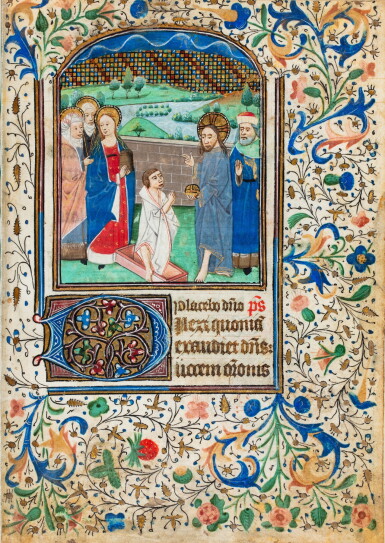 placebo dño pš
Dilexi quoniā
exaudiet dñs:
uocem orōnis